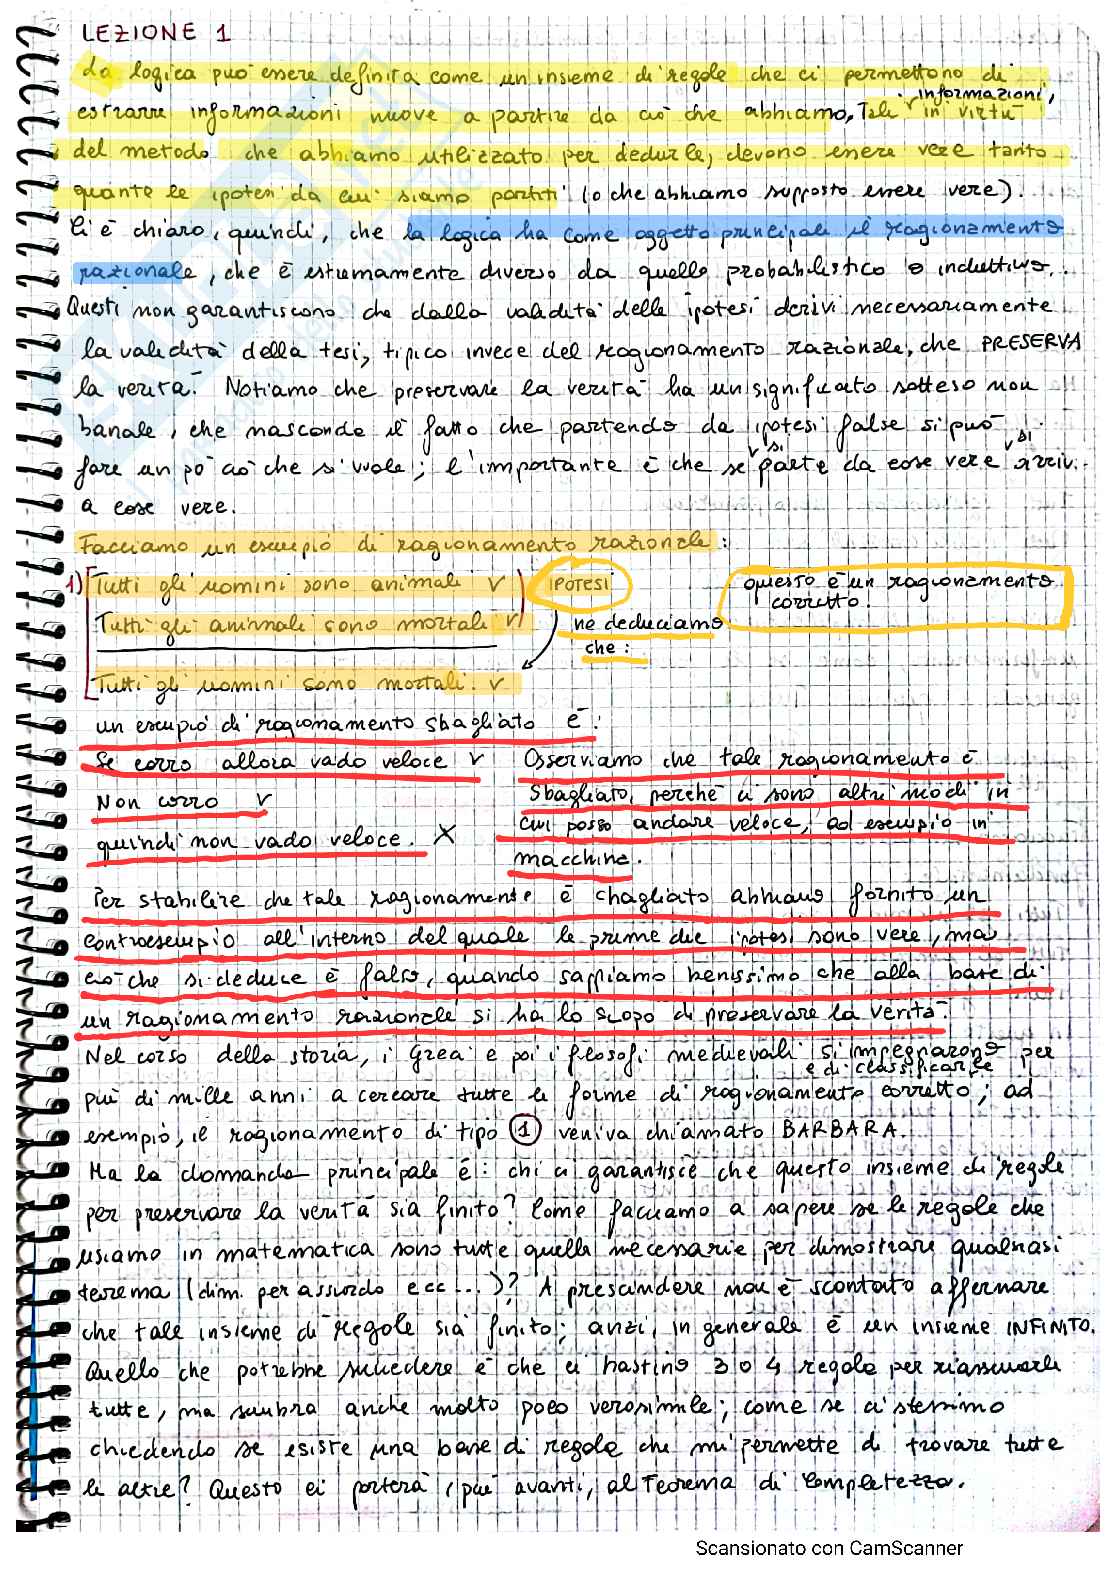 LEZIONE 1
La logica può essere definita come un insieme di regole che ci permettono di
estrarre informazioni nuove a partire da ciò che abbiamo. Tali informazioni, in virtù
del metodo che abbiamo utilizzato per dedurle, devono essere vere tanto
quante le ipotesi da cui siamo partiti (o che abbiamo supposto essere vere).
Ci è chiaro, quindi, che la logica ha come oggetto principale il ragionamento
razionale, che è estremamente diverso da quello probabilistico o induttivo.
Questi non garantiscono che dalla validità delle ipotesi derivi necessariamente
la validità della tesi, tipico invece del ragionamento razionale, che PRESERVA
la verità. Notiamo che preservare la verità ha un significato sotteso non
banale, che nasconde il fatto che partendo da ipotesi false si può
fare un pò ciò che si vuole; l'importante è che se si parte da cose vere si arrivi
a cose vere.
Facciamo un esempio di ragionamento razionale:
1) Tutti gli uomini sono animali v IPOTESI questo è un ragionamento
corretto.
Tutti gli animali sono mortali v ne deduciamo
che:
Tutti gli uomini sono mortali. v
un esempio di ragionamento sbagliato è:
Se corro allora vado veloce v Osserviamo che tale ragionamento è
Non corro v sbagliato, perché ci sono altri modi in
quindi non vado veloce. X cui posso andare veloce, ad esempio in
macchina.
Per stabilire che tale ragionamento è sbagliato abbiamo fornito un
controesempio all'interno del quale le prime due ipotesi sono vere, ma
ciò che si deduce è falso, quando sappiamo benissimo che alla base di
un ragionamento razionale si ha lo scopo di preservare la verità.
Nel corso della storia, i Greci e poi i filosofi medievali si impegnarono per
più di mille anni a cercare e di classificare tutte le forme di ragionamento corretto; ad
esempio, il ragionamento di tipo 1 veniva chiamato BARBARA.
Ma la domanda principale è: chi ci garantisce che questo insieme di regole
per preservare la verità sia finito? Come facciamo a sapere se le regole che
usiamo in matematica sono tutte quelle necessarie per dimostrare qualsiasi
teorema (dim. per assurdo ecc...)? A prescindere non è scontato affermare
che tale insieme di regole sia finito; anzi, in generale è un insieme INFINITO.
Quello che potrebbe succedere è che ci bastino 3 o 4 regole per riassumerle
tutte, ma sembra anche molto poco verosimile; come se ci stessimo
chiedendo se esiste una base di regole che mi permette di trovare tutte
le altre? Questo ci porterà, più avanti, al Teorema di Completezza.
Scansionato con CamScanner